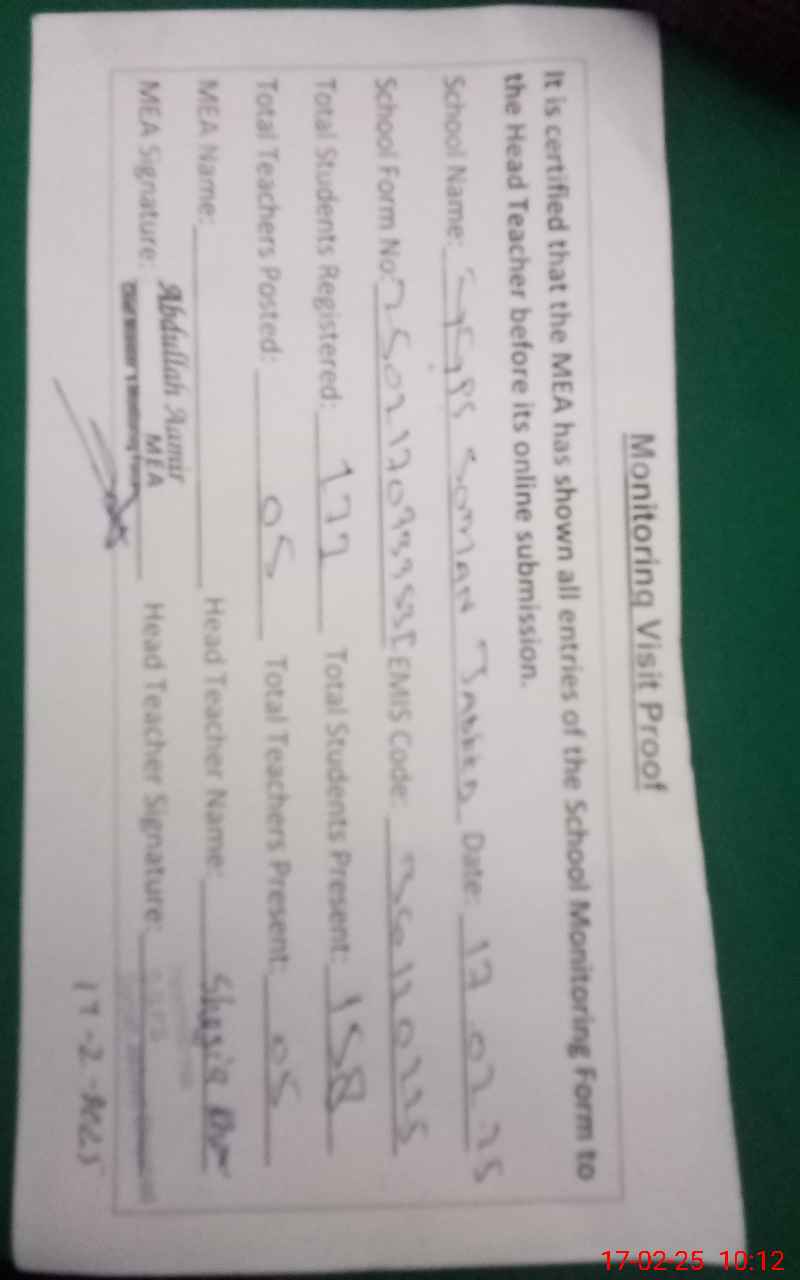 Monitoring Visit Proof
It is certified that the MEA has shown all entries of the School Monitoring Form to
the Head Teacher before its online submission.
School Name: Date: 17.02.25
School Form No: EMIS Code:
Total Students Registered: 177 Total Students Present: 158
Total Teachers Posted: 05 Total Teachers Present: 05
MEA Name: Head Teacher Name: Shazia
MEA Signature: Abdullah Aamir Head Teacher Signature:
MEA
17-2-2025
17-02-25 10:12